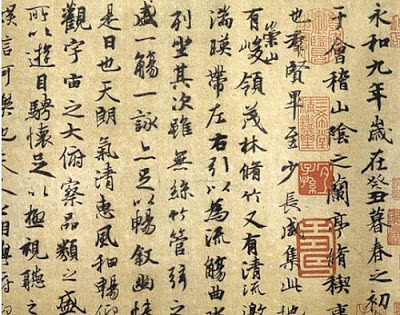 永和九年歲在癸丑暮春之初
于會稽山陰之蘭亭脩禊事
也羣賢畢至少長咸集此地
有崇山峻領茂林脩竹又有清流激
湍暎帶左右引以為流觴曲水
列坐其次雖無絲竹管弦之
盛一觴一詠亦足以暢叙幽情
是日也天朗氣清惠風和暢仰
觀宇宙之大俯察品類之盛
所以遊目騁懷足以極視聽之
信可樂也